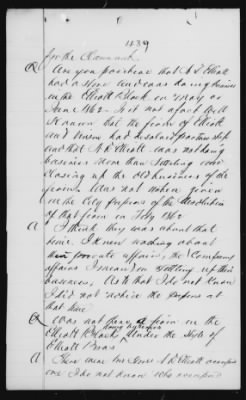 1439
for the Claimant.
Q Are you positive that S R Elliott
had a store and was doing business
in the Elliott Block in May or
June 1862 - Is it not a fact well
Known that the firm of Elliott
and had partnership
and that S R Elliott was not doing
business more than settling and
closing up the old business of the
firm. Was not notice given
in the City papers of the dissolution
of that firm in Feby 1862
A I think they was about that
time. I knew nothing about
their private affairs, the Company
affairs I mean in settling up their
business, As to that I do not know
I did not notice the papers at
that time
Q Was not there a firm in the
Elliott Block doing business under the style of
Elliott Bros
A There were two stores S R Elliott occupied
one I do not know who occupied